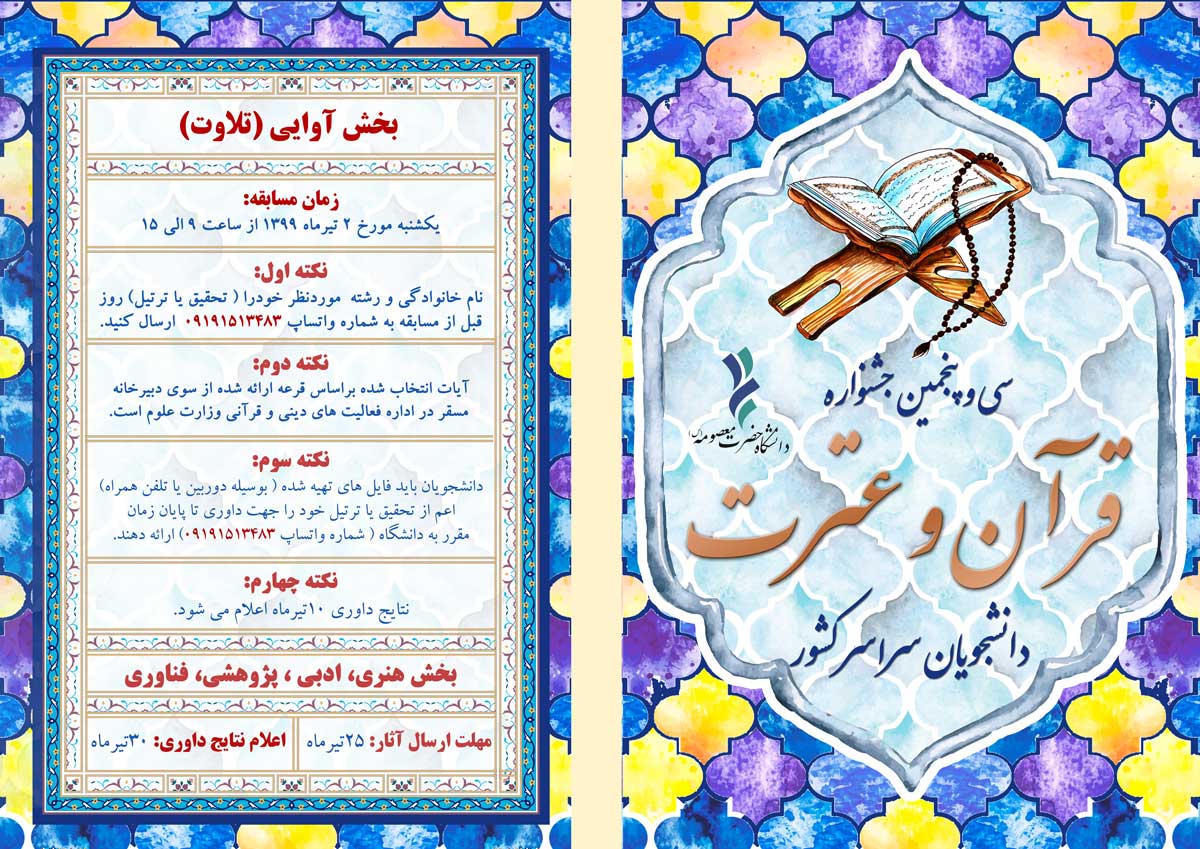 سی و پنجمین جشنواره
قرآن و عترت
دانشجویان سراسر کشور
دانشگاه حضرت معصومه (س)
بخش آوایی (تلاوت)
زمان مسابقه:
یکشنبه مورخ ۲ تیرماه ۱۳۹۹ از ساعت ۹ الی ۱۵
نکته اول:
نام خانوادگی و رشته موردنظر خودرا ( تحقیق یا ترتیل) روز
قبل از مسابقه به شماره واتساپ ۰۹۱۹۱۵۱۳۴۸۳ ارسال کنید.
نکته دوم:
آیات انتخاب شده براساس قرعه ارائه شده از سوی دبیرخانه
مسقر در اداره فعالیت های دینی و قرآنی وزارت علوم است.
نکته سوم:
دانشجویان باید فایل های تهیه شده ( بوسیله دوربین یا تلفن همراه)
اعم از تحقیق یا ترتیل خود را جهت داوری تا پایان زمان
مقرر به دانشگاه ( شماره واتساپ ۰۹۱۹۱۵۱۳۴۸۳) ارائه دهند.
نکته چهارم:
نتایج داوری ۱۰تیرماه اعلام می شود.
بخش هنری، ادبی ، پژوهشی، فناوری
مهلت ارسال آثار: ۲۵تیرماه
اعلام نتایج داوری: ۳۰تیرماه